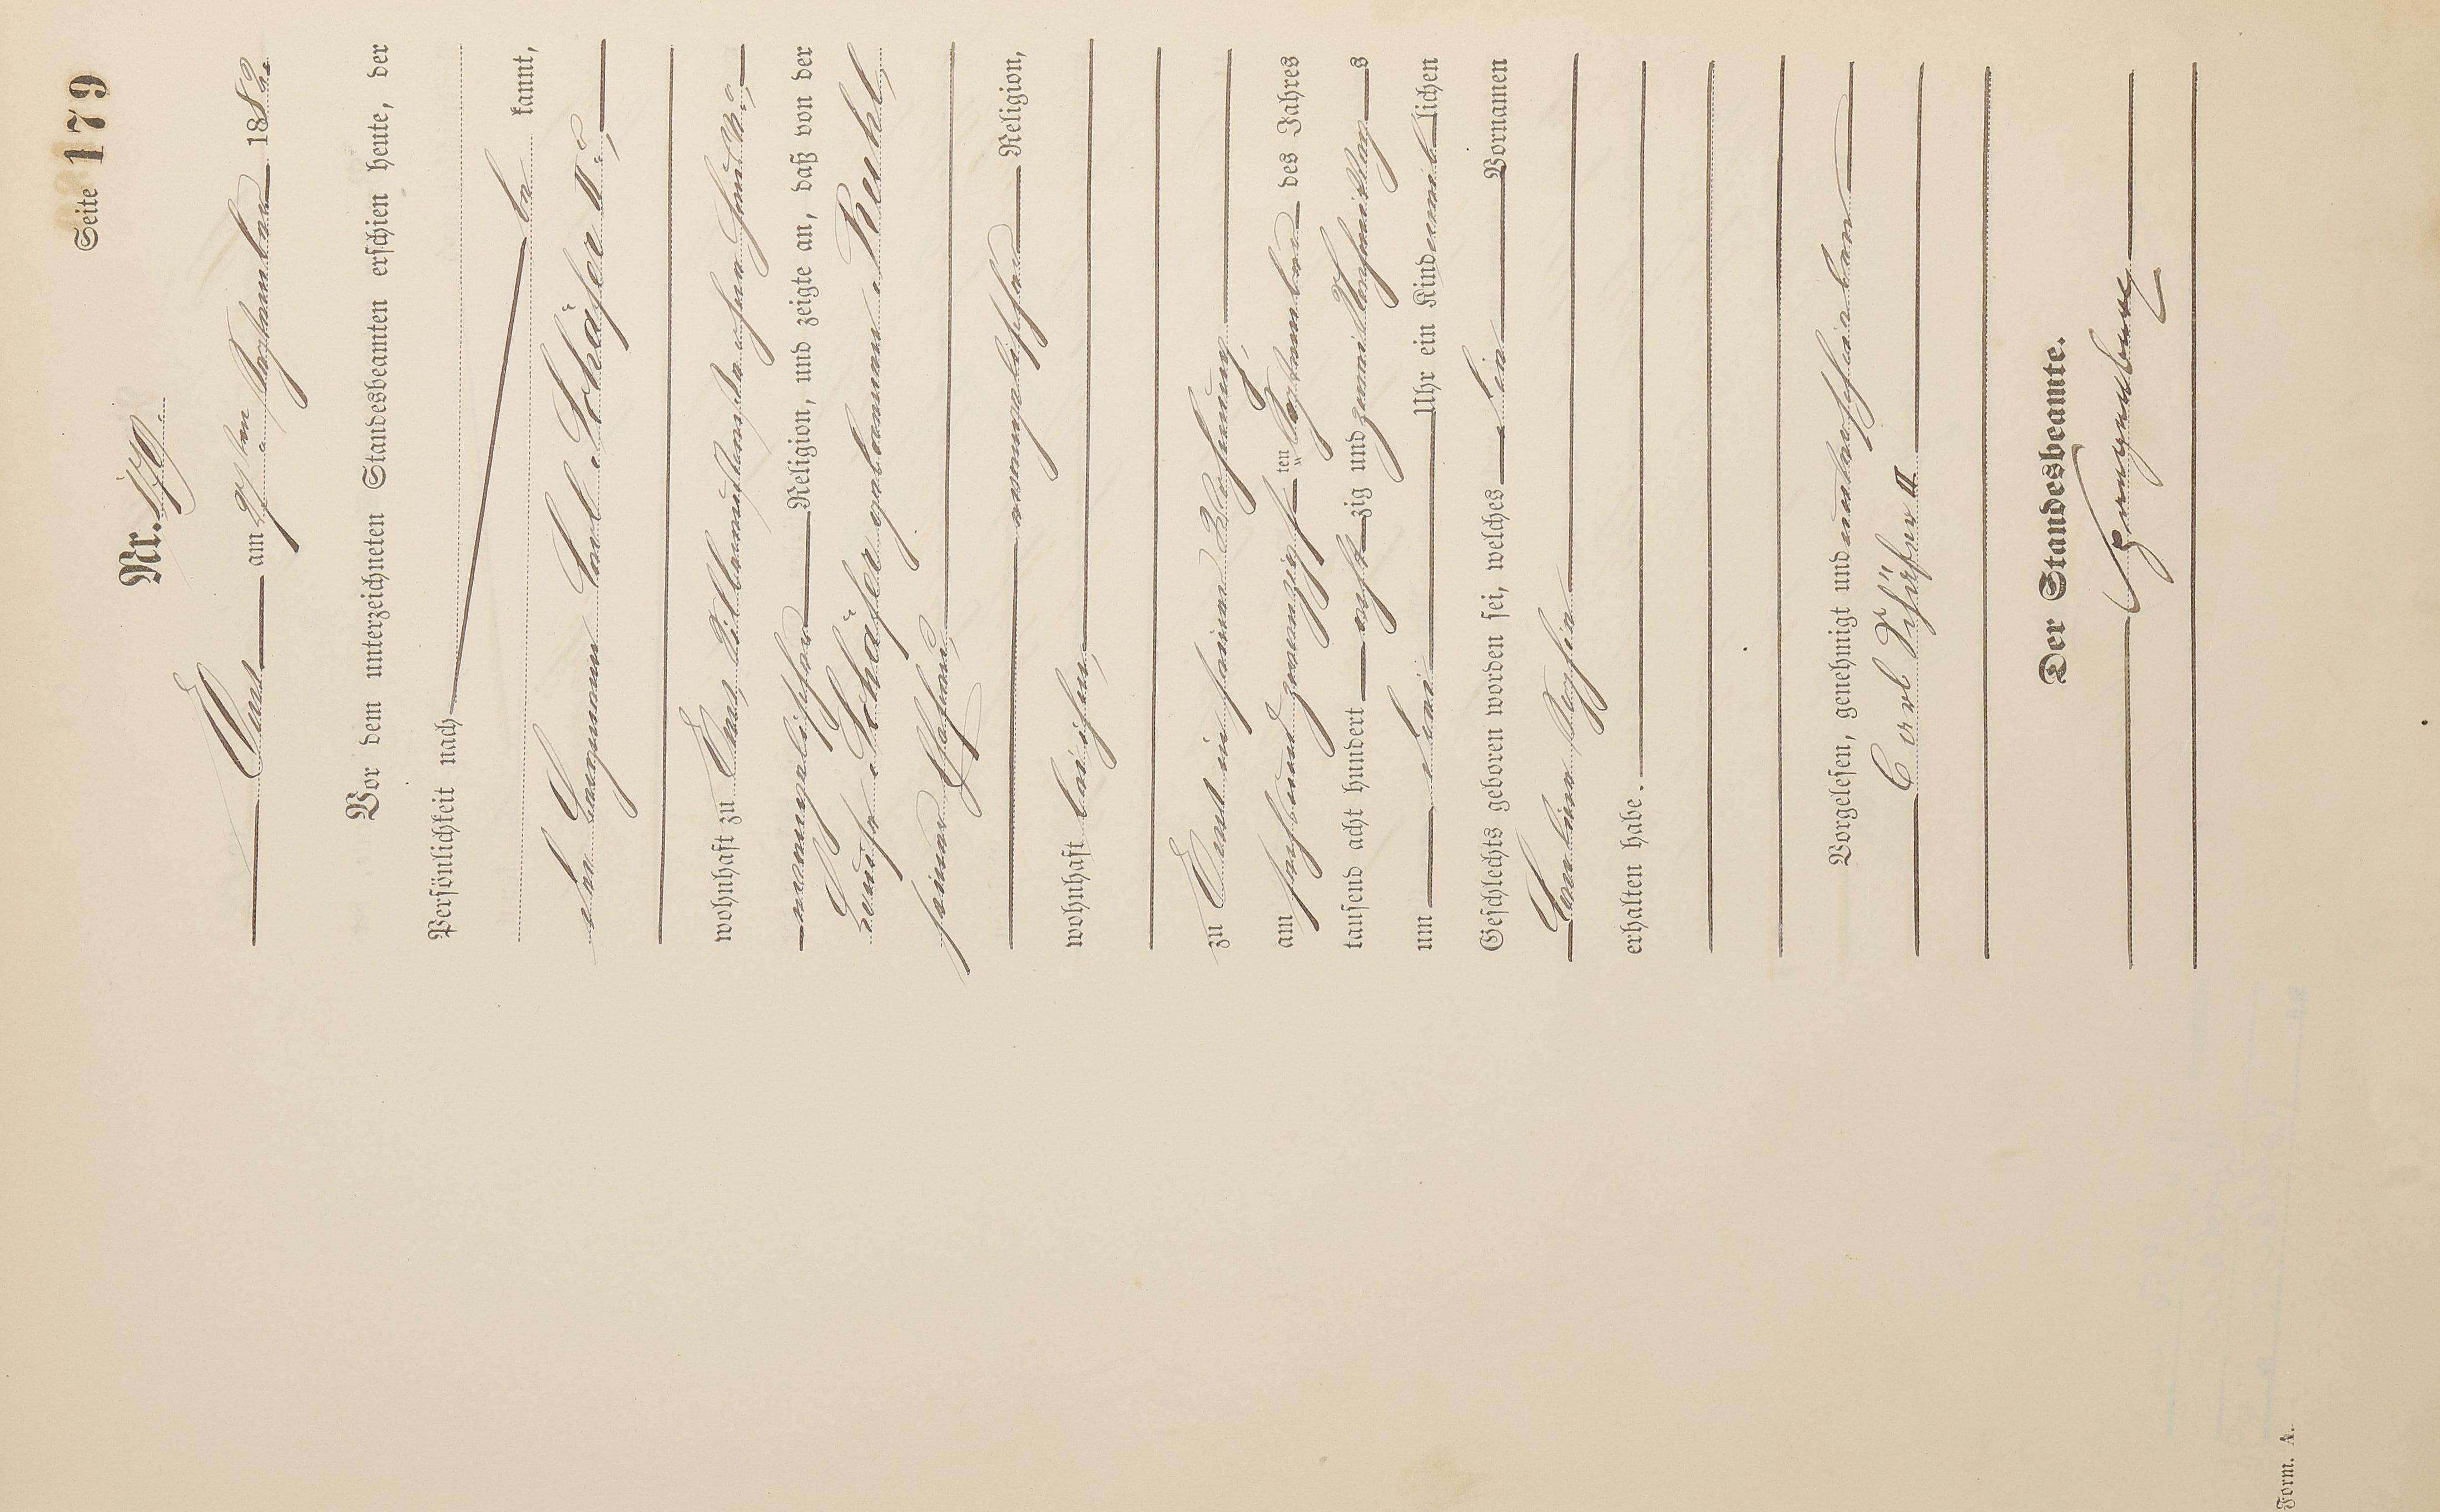 Seite 179
Nr. 179.
Ems am 27ten September 1882.
Vor dem unterzeichneten Standesbeamten erschien heute, der
Persönlichkeit nach
be kannt,
der Carl Schäfer IIr,
wohnhaft zu Ems,
evangelischer Religion, und zeigte an, daß von der
Louise Schäfer geborenen Ruckl,
seiner Ehefrau,
evangelischer Religion,
wohnhaft bei ihm,
zu Ems in seiner Wohnung,
am sechsundzwanzigsten September des Jahres
tausend acht hundert achtzig und zwei Nachmittags
um drei Uhr ein Kind weiblichen
Geschlechts geboren worden sei, welches die Vornamen
Caroline Sophie
erhalten habe.
Vorgelesen, genehmigt und unterschrieben
Carl Schäfer II
Der Standesbeamte.
Form. A.